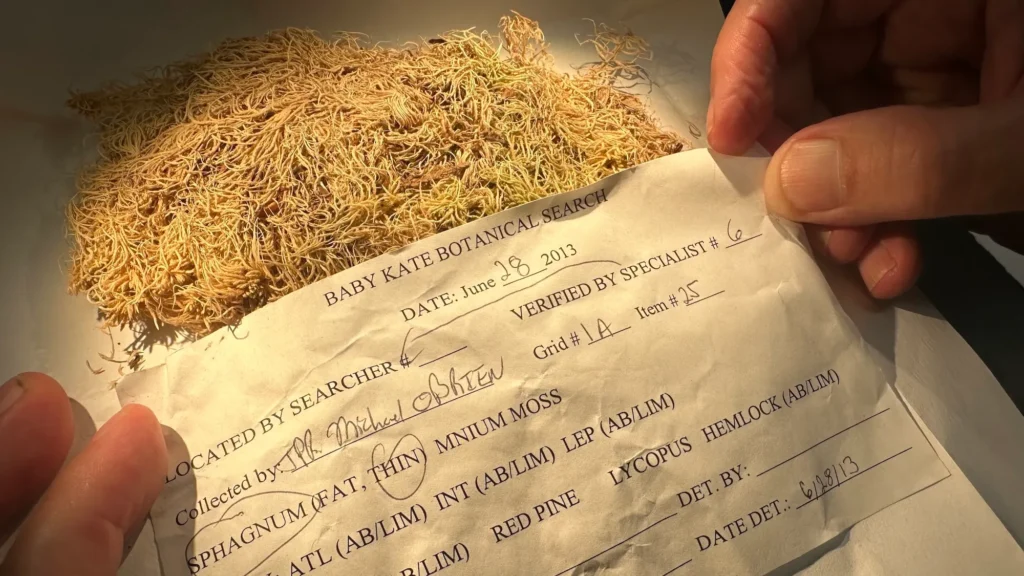 BABY KATE BOTANICAL SEARCH
DATE: June 28 2013
LOCATED BY SEARCHER # VERIFIED BY SPECIALIST # 6
Collected by: TPR. Michael O'BRIEN Grid # 1A Item # 25
SPHAGNUM (FAT, THIN) MNIUM MOSS
ATL (AB/LIM) INT (AB/LIM) LEP (AB/LIM)
B/LIM) RED PINE LYCOPUS HEMLOCK (AB/LIM)
DET. BY:
DATE DET.: 6/28/13